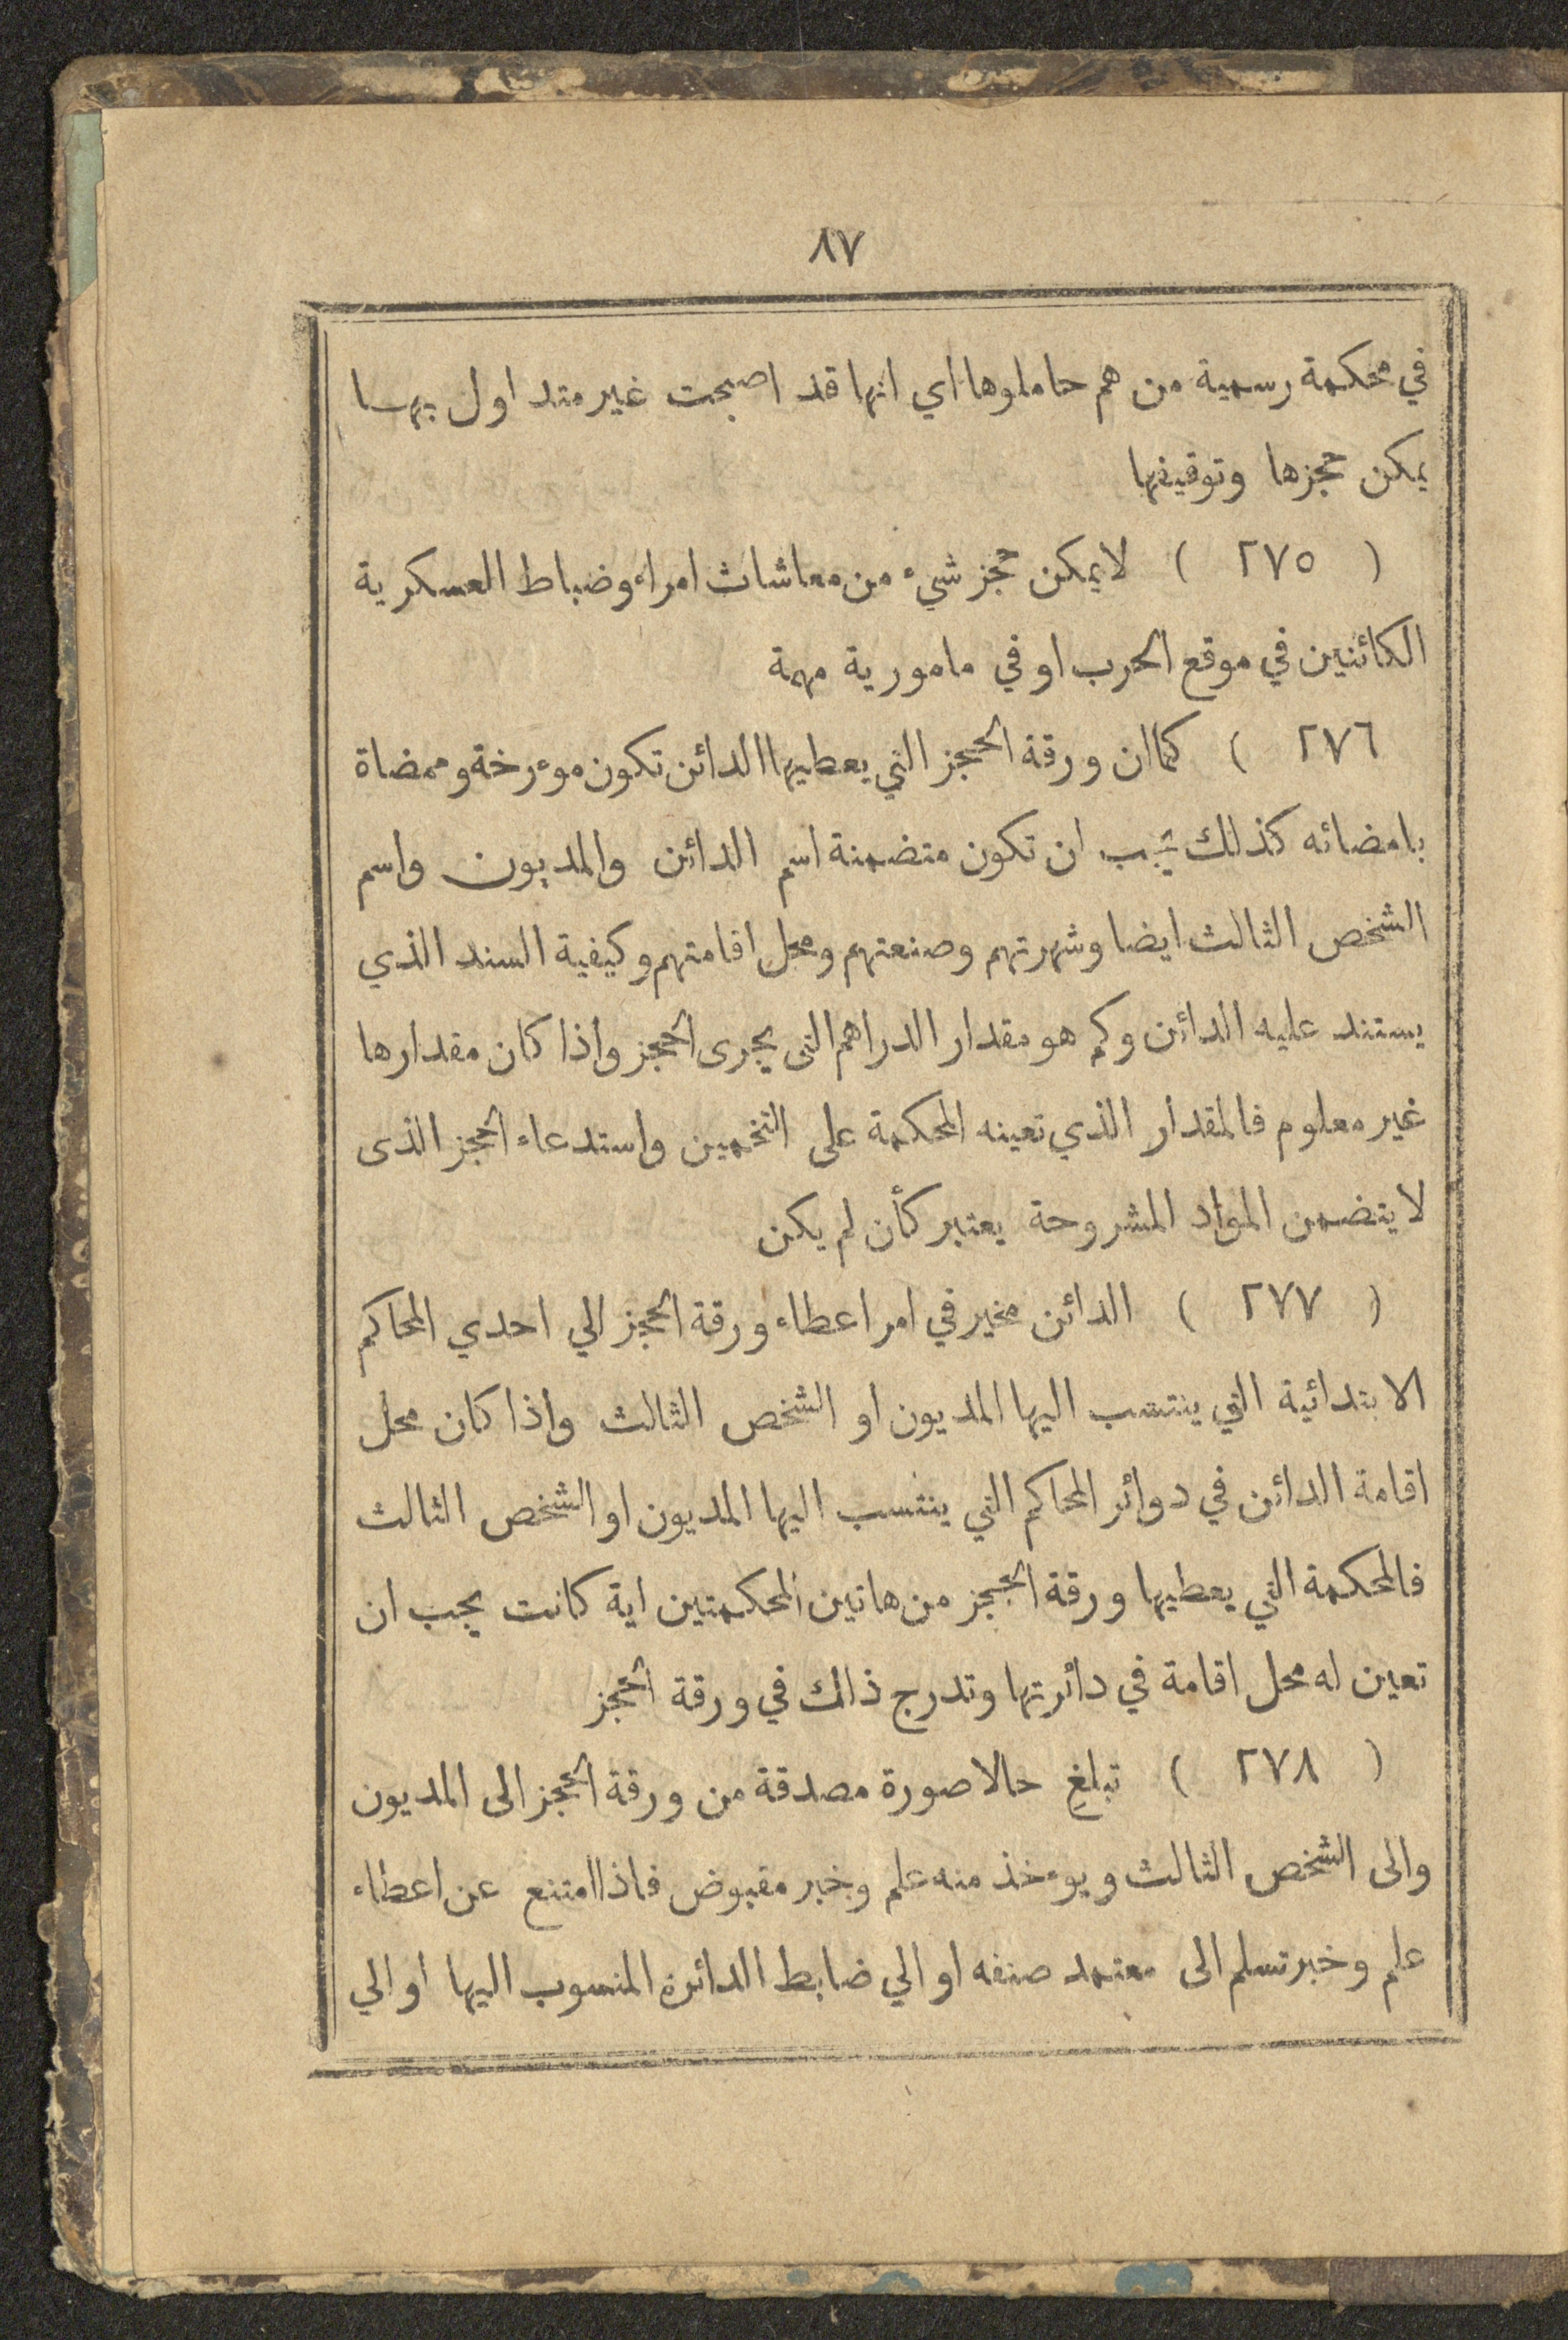 ٨٧
في محكمة رسمية من هم حاملوها اي انها قد اصبحت غير متداول بهــا
يمكن حجزها وتوقيفها
( ٢٧٥ ) لا يمكن حجز شيء من معاشات امراء وضباط العسكرية
الكائنين في موقع الحرب او في مامورية مهمة
٢٧٦ ) كما ان ورقة الحجز التي يعطيها الدائن تكون موءرخة وممضاة
بامضائه كذلك يجب ان تكون متضمنة اسم الدائن والمديون واسم
الشخص الثالث ايضا وشهرتهم وصنعتهم ومحل اقامتهم وكيفية السند الذي
يستند عليه الدائن وكم هو مقدار الدراهم التى يجرى الحجز واذا كان مقدارها
غير معلوم فالمقدار الذي تعينه المحكمة على التخمين واستدعاء الحجز الذى
لا يتضمن المواد المشروحة يعتبر كأن لم يكن
( ٢٧٧ ) الدائن مخير في امر اعطاء ورقة الحجز الي احدي المحاكم
الابتدائية التي ينتسب اليها المديون او الشخص الثالث واذا كان محل
اقامة الدائن في دوائر المحاكم التي ينتسب اليها المديون او الشخص الثالث
فالمحكمة التي يعطيها ورقة الحجز من هاتين المحكمتين اية كانت يجب ان
تعين له محل اقامة في دائرتها وتدرج ذالك في ورقة الحجز
( ٢٧٨ ) تبلغ حالا صورة مصدقة من ورقة الحجز الى المديون
والى الشخص الثالث ويوءخذ منه علم وخبر مقبوض فاذا امتنع عن اعطاء
علم وخبر تسلم الى معتمد صنفه او الي ضابط الدائرة المنسوب اليها او الي